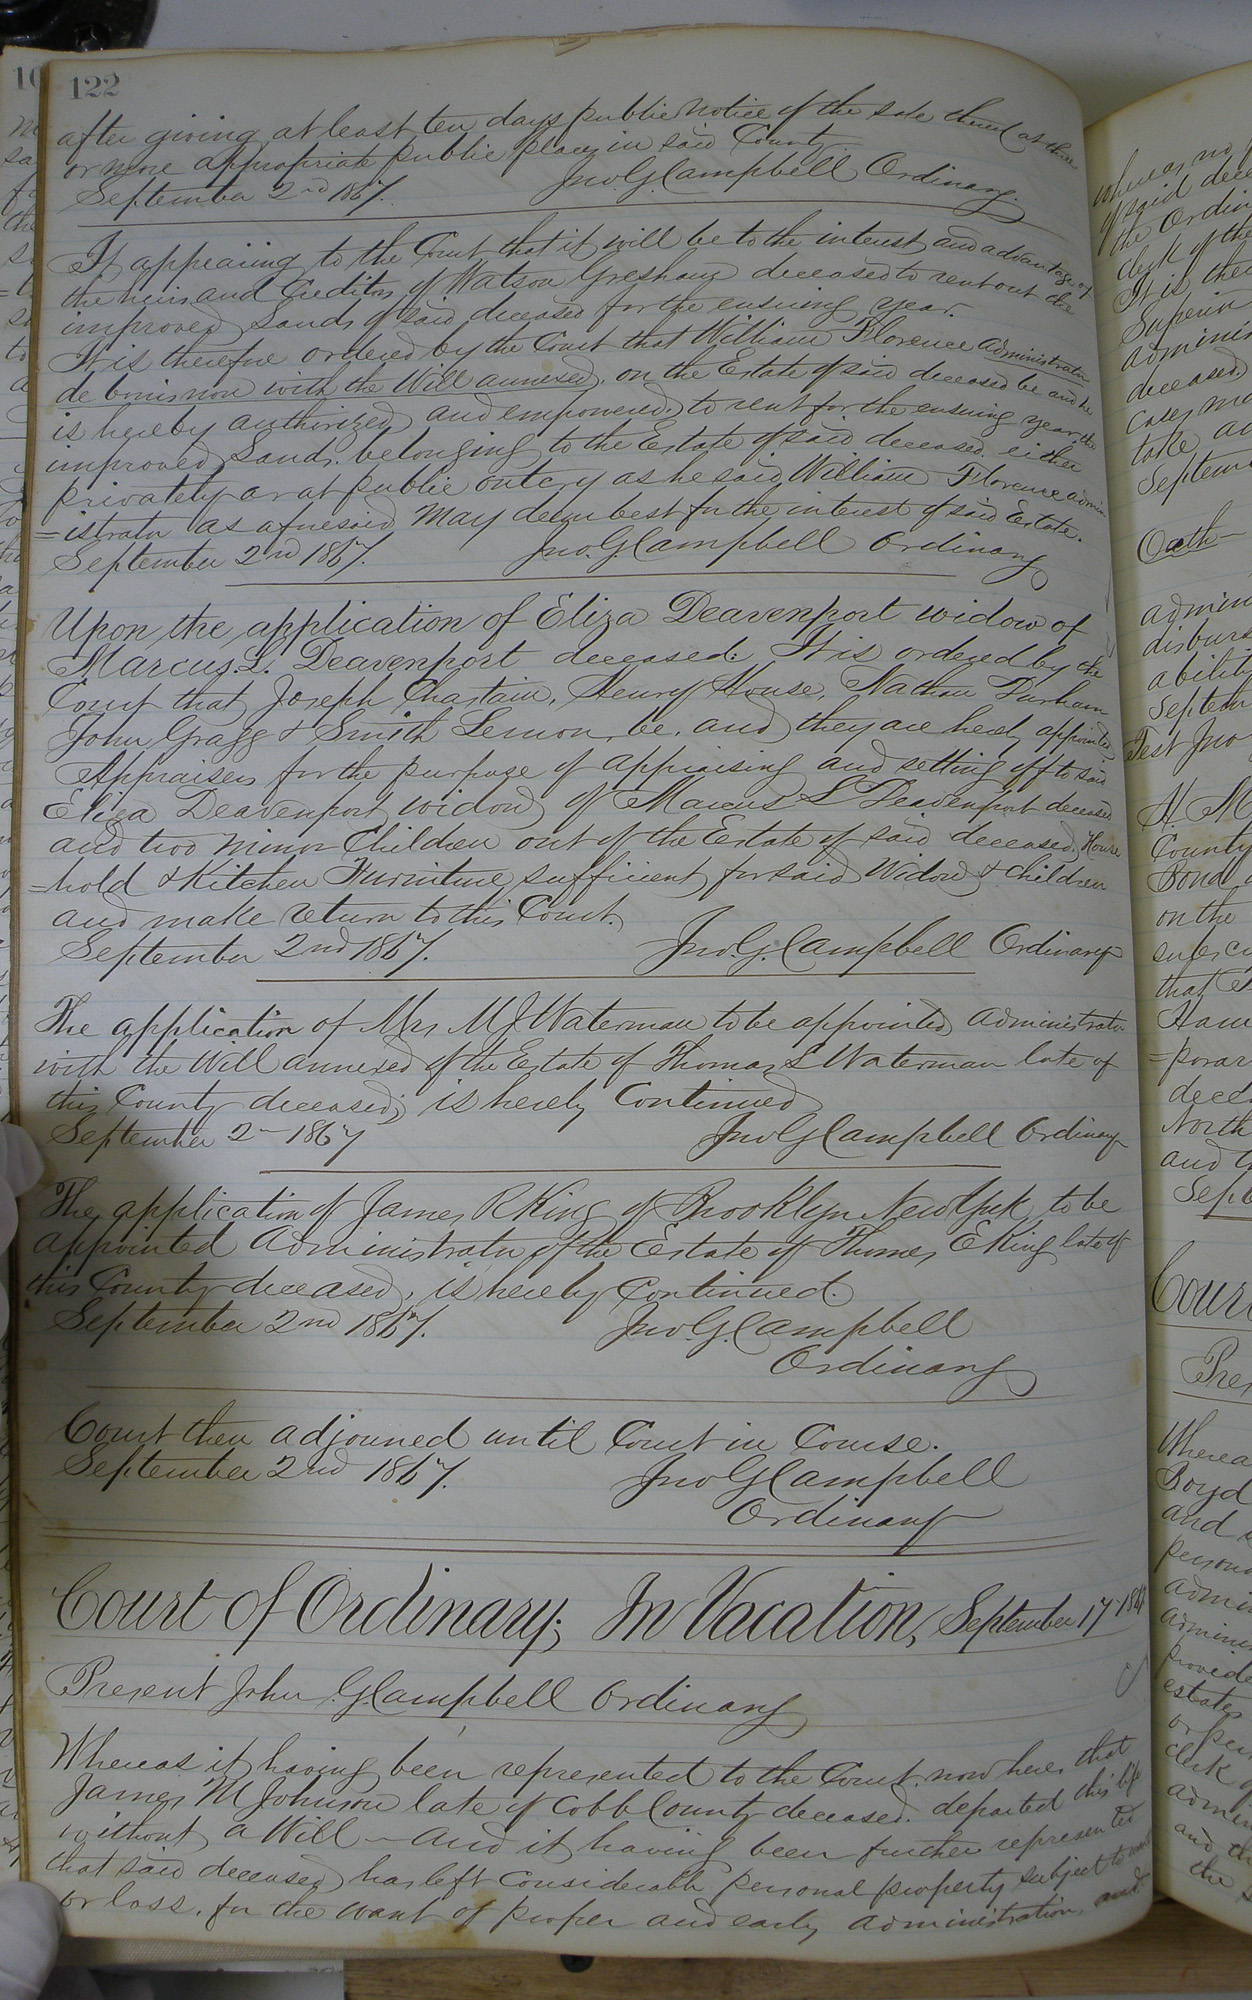 122
after giving at least ten days public notice of the sale thereof at three
or more appropriate public places in said County
September 2nd 1867. Jno. G. Campbell Ordinary
It appearing to the Court that it will be to the interest and advantage of
the heirs and Creditors of Watson Gresham deceased to rent out the
improved Lands of said deceased for the ensuing year.
It is therefore ordered by the Court that William Florence administrator
de bonis non with the Will annexed, on the Estate of said deceased be and he
is hereby authorized and empowered, to rent for the ensuing year, the
improved Lands, belonging to the Estate of said deceased either
privately or at public outcry as he said William Florence admin
=istrator as aforesaid may deem best for the interest of said Estate.
September 2nd 1867. Jno. G Campbell Ordinary
Upon the application of Eliza Deavenport widow of
Marcus. L. Deavenport deceased. It is ordered by the
Court that Joseph Chastain, Henry House, Nathan Durham
John Gragg & Smith Lemon, be, and they are hereby appointed
Appraisers for the purpose of appraising and setting off to said
Eliza Deavenport widow of Marcus L Deavenport deceased
and two minor Children out of the Estate of said deceased, House
=hold & Kitchen Furniture sufficient for said Widow & children
and make return to this Court.
September 2nd 1867. Jno. G. Campbell Ordinary
The application of Mrs M J Waterman to be appointed administrator
with the Will annexed of the Estate of Thomas L Waterman late of
this County deceased, is hereby Continued
September 2 1867 Jno G Campbell Ordinary
The application of James R King of Brooklyn New York to be
appointed Administrator of the Estate of Thomas E King late of
this County deceased, is hereby Continued.
September 2nd 1867. Jno. G. Campbell
Ordinary
Court then adjourned until Court in Course.
September 2nd 1867. Jno G Campbell
Ordinary
Court of Ordinary; In Vacation, September 17 1867
Present John G. Campbell Ordinary
Whereas it having been represented to the Court now here, that
James M Johnson late of Cobb County deceased. departed this life
without a Will - and it having been further represented
that said deceased has left Considerable personal property subject to waste
or loss, for the want of proper and early administration, and
whereas no
of said dece
the Ordin
clerk of the
It is ther
Superior
adminis
deceased
cases ma
take a
Septem
Oath
admin
disburs
ability
Septem
Test Jno
H. M
County
Bond
on the
that
Ham
=porar
dece
North
and
Sept
Cour
Pres
Wherea
Boyd
and
persona
admi
adminis
provide
estates
or per
clerk of
admi
and th
the